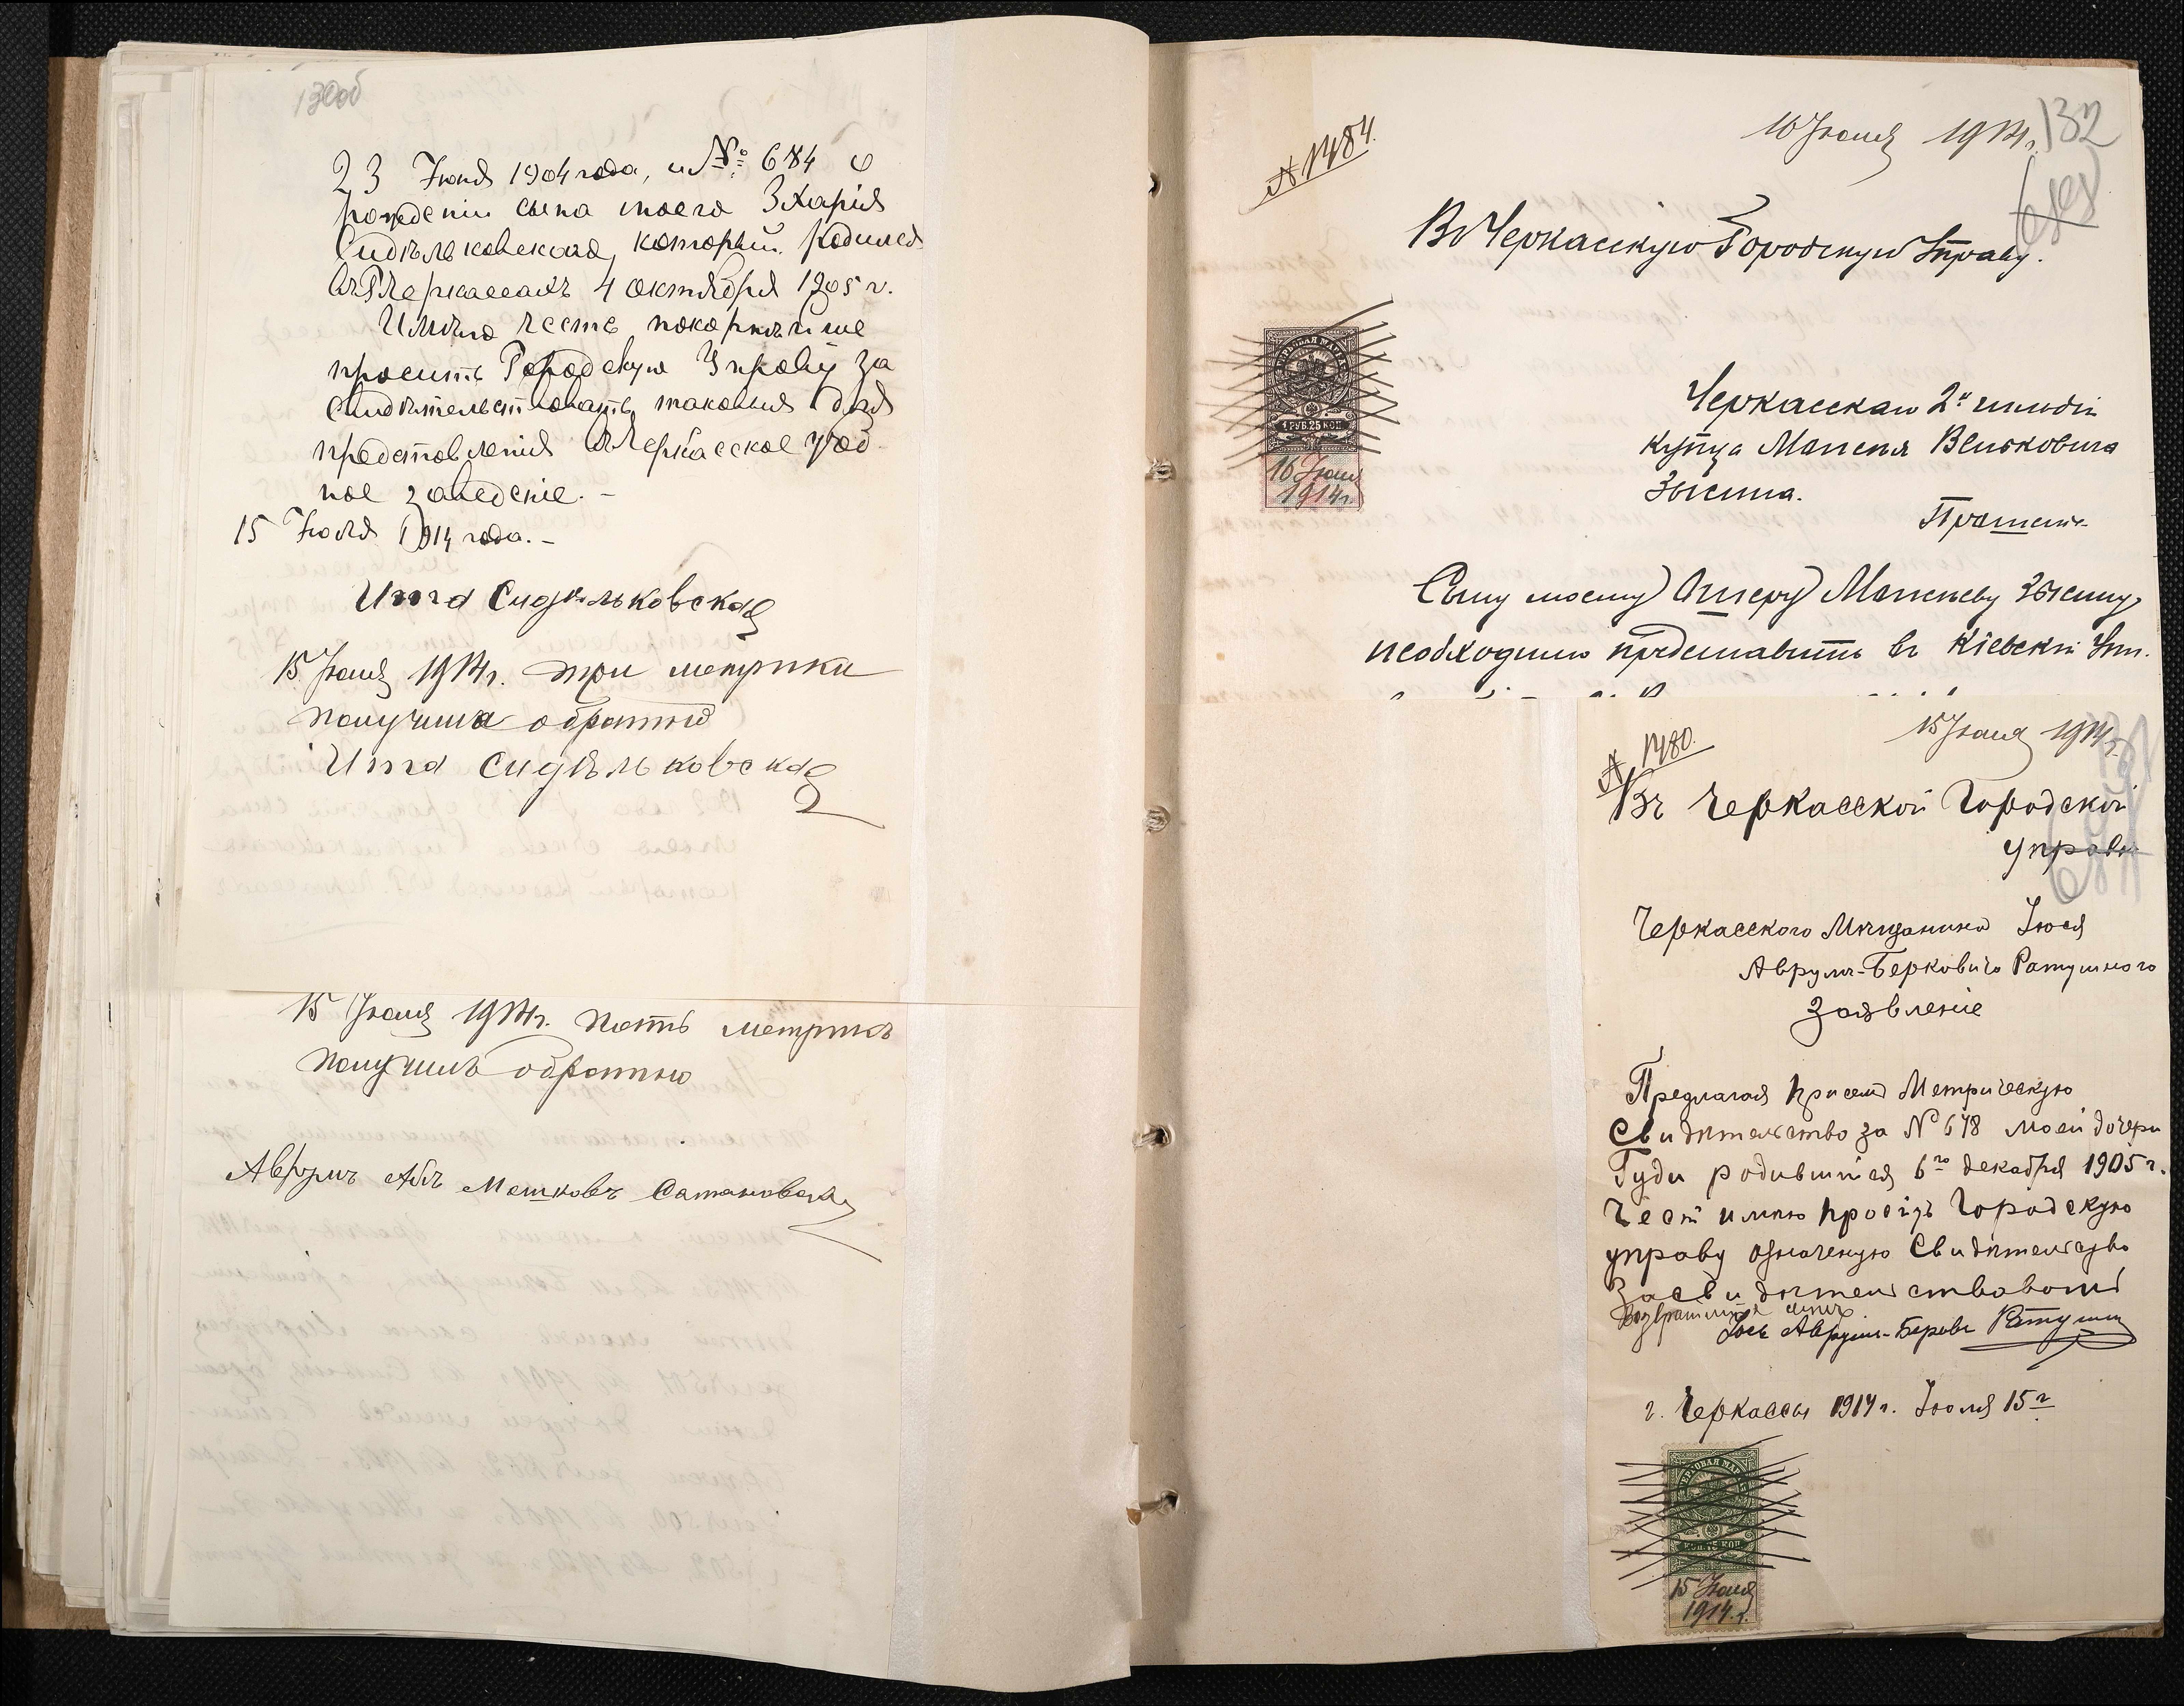 130об
23 Іюня 1904 года, и №: 684 о
рождении сына моего Зхарія
Сидельковскаго, который родился
въ Г. Черкассахъ 4 октября 1905 г.
Имѣю честь покорнейше
просить Городскую Управу за
свидѣтельствовать таковыя для
представленія въ Черкасское учеб
ное заведеніе. -
15 Іюля 1914 года. -
Сидѣльковская
15 Іюля 1914 г. три метрики
получила обратно
Сидѣльковская
15 Іюля 1914 г. пять метрикъ
получилъ обратно
Аврумъ Аба Мошковъ Сатановскій
№ 1484.
16 Іюля 1914 г.
132
Въ Черкасскую Городскую Управу.
1 РУБ. 25 КОП
16 Іюля
1914 г.
Черкасскаго 2й гильдіи
купца
Зысина.
Прошеніе
Сыну моему Ошеру Зысину
необходимо представить въ Кіевскій
№ 1480.
15 Іюля 1914 г.
Въ Черкасской Городской
управы
Черкасского Мещанина Іося
Аврумъ-Берковича Ратушного
Заявленіе
Предлагая присемъ Метрическую
Свидѣтельство за № 678 моей дочери
Гуди родившийся 6го декабря 1905 г.
Честь имѣю просить Городскую
управу означеную Свидѣтельство
Засвидѣтельствовать
Іось Аврумъ-Берков Ратушный
г. Черкассы 1914 г. Іюля 15 г
ГЕРБОВАЯ МАРКА
КОП. 75 КОП.
15 Іюля
1914 г.